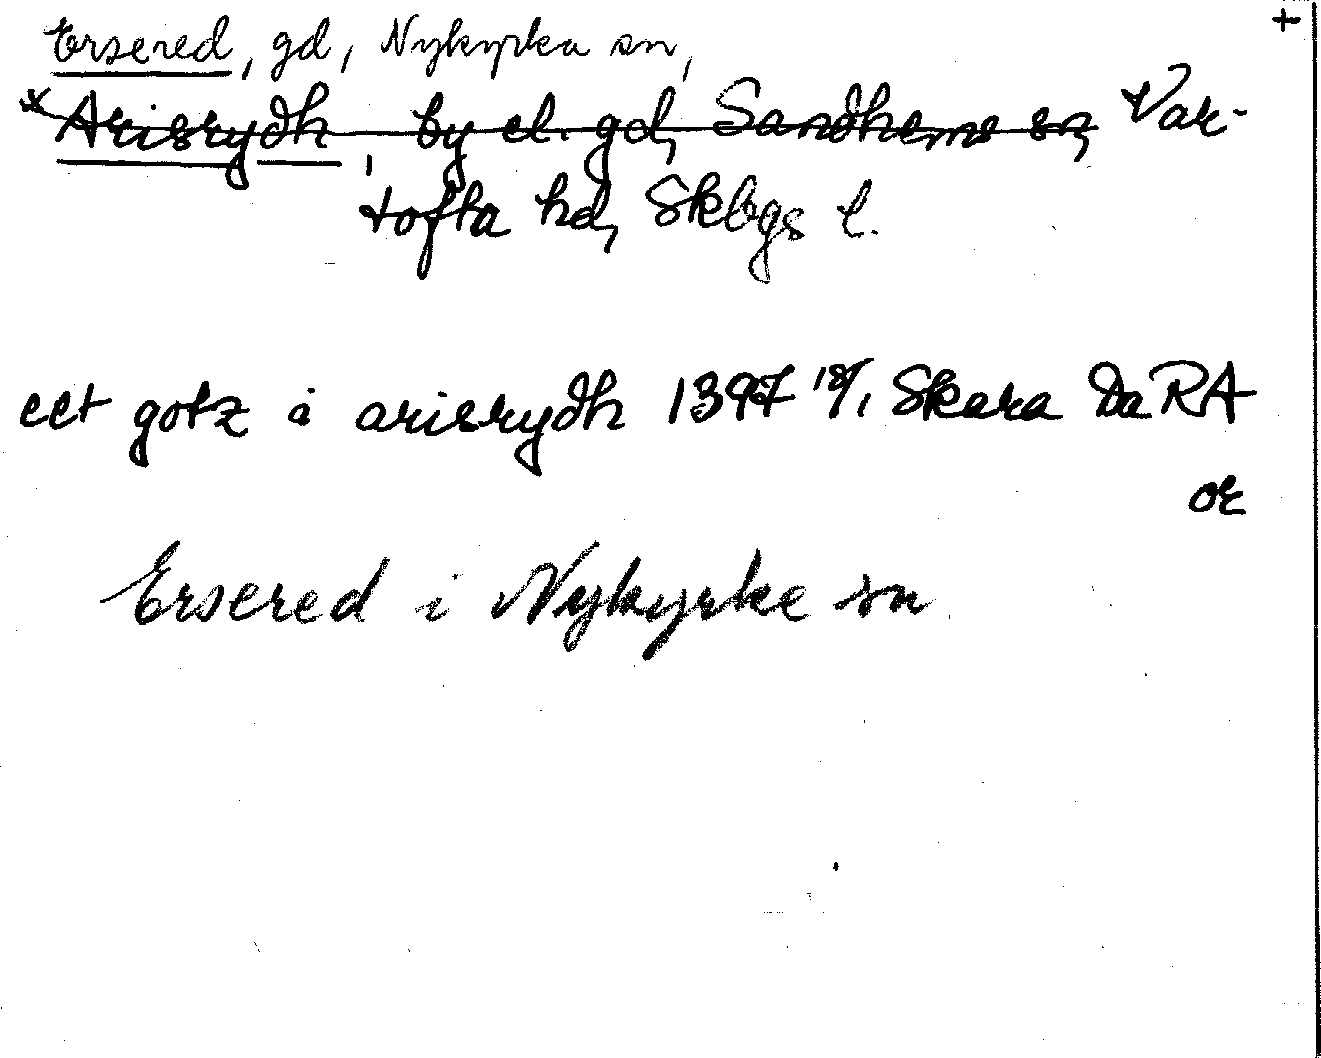 +
Ersered, gd, Nykyrka sn,
*Arisrydh, by el. gd, Sandhems sn, Var-
tofta hd, Skbgs l.
eet gotz i arisrydh 1397 18/1 Skara DaRA
or
Ersered i Nykyrke sn